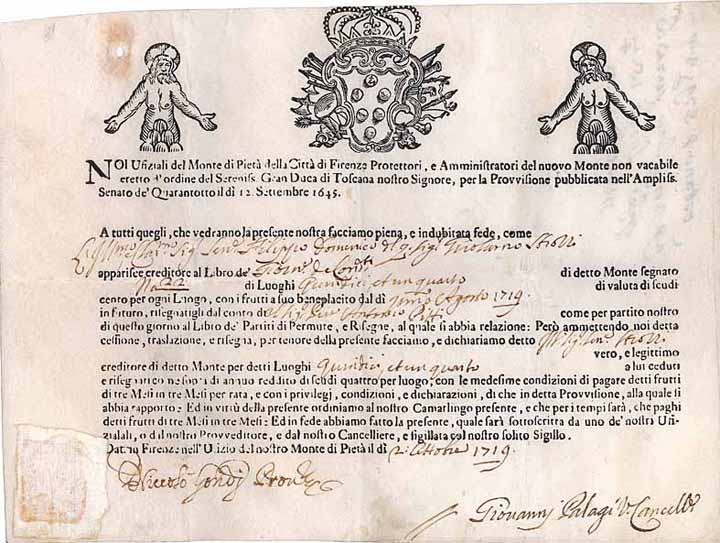 NOI Ufiziali del Monte di Pietà della Città di Firenze Protettori, e Amministratori del nuovo Monte non vacabile
eretto d'ordine del Sereniss. Gran Duca di Toscana nostro Signore, per la Provvisione pubblicata nell'Ampliss.
Senato de' Quarantotto il dì 12. Settembre 1645.
A tutti quegli, che vedranno la presente nostra facciamo piena, e indubitata fede, come
Sig. Sen. Filippo Domenico del
apparisce creditore al Libro de'
No. 22 di Luoghi Quindici, et un quarto di detto Monte segnato
di valuta di scudi
cento per ogni Luogo, con i frutti a suo beneplacito dal dì primo Agosto 1719.
in futuro, risegnatigli dal conto di Antonio come per partito nostro
di questo giorno al Libro de' Partiti di Permute, e Risegne, al quale si abbia relazione: Però ammettendo noi detta
cessione, traslazione, e risegna, per tenore della presente facciamo, e dichiariamo detto
vero, e legittimo
creditore di detto Monte per detti Luoghi Quindici, et un quarto a lui ceduti
e risegnati come sopra di annuo reddito di scudi quattro per luogo; con le medesime condizioni di pagare detti frutti
di tre Mesi in tre Mesi per rata, e con i privilegj, condizioni, e dichiarazioni, di che in detta Provvisione, alla quale si
abbia rapporto: Ed in virtù della presente ordiniamo al nostro Camarlingo presente, e che per i tempi sarà, che paghi
detti frutti di tre Mesi in tre Mesi: Ed in fede abbiamo fatto la presente, quale sarà sottoscritta da uno de' nostri Ufi-
ziali, o dal nostro Provveditore, e dal nostro Cancelliere, e sigillata col nostro solito Sigillo.
Dat. in Firenze nell'Ufizio del nostro Monte di Pietà il dì 2. Ottobre 1719.
Niccolò Gondj Provv.
Giovannj Palagi V. Cancell.